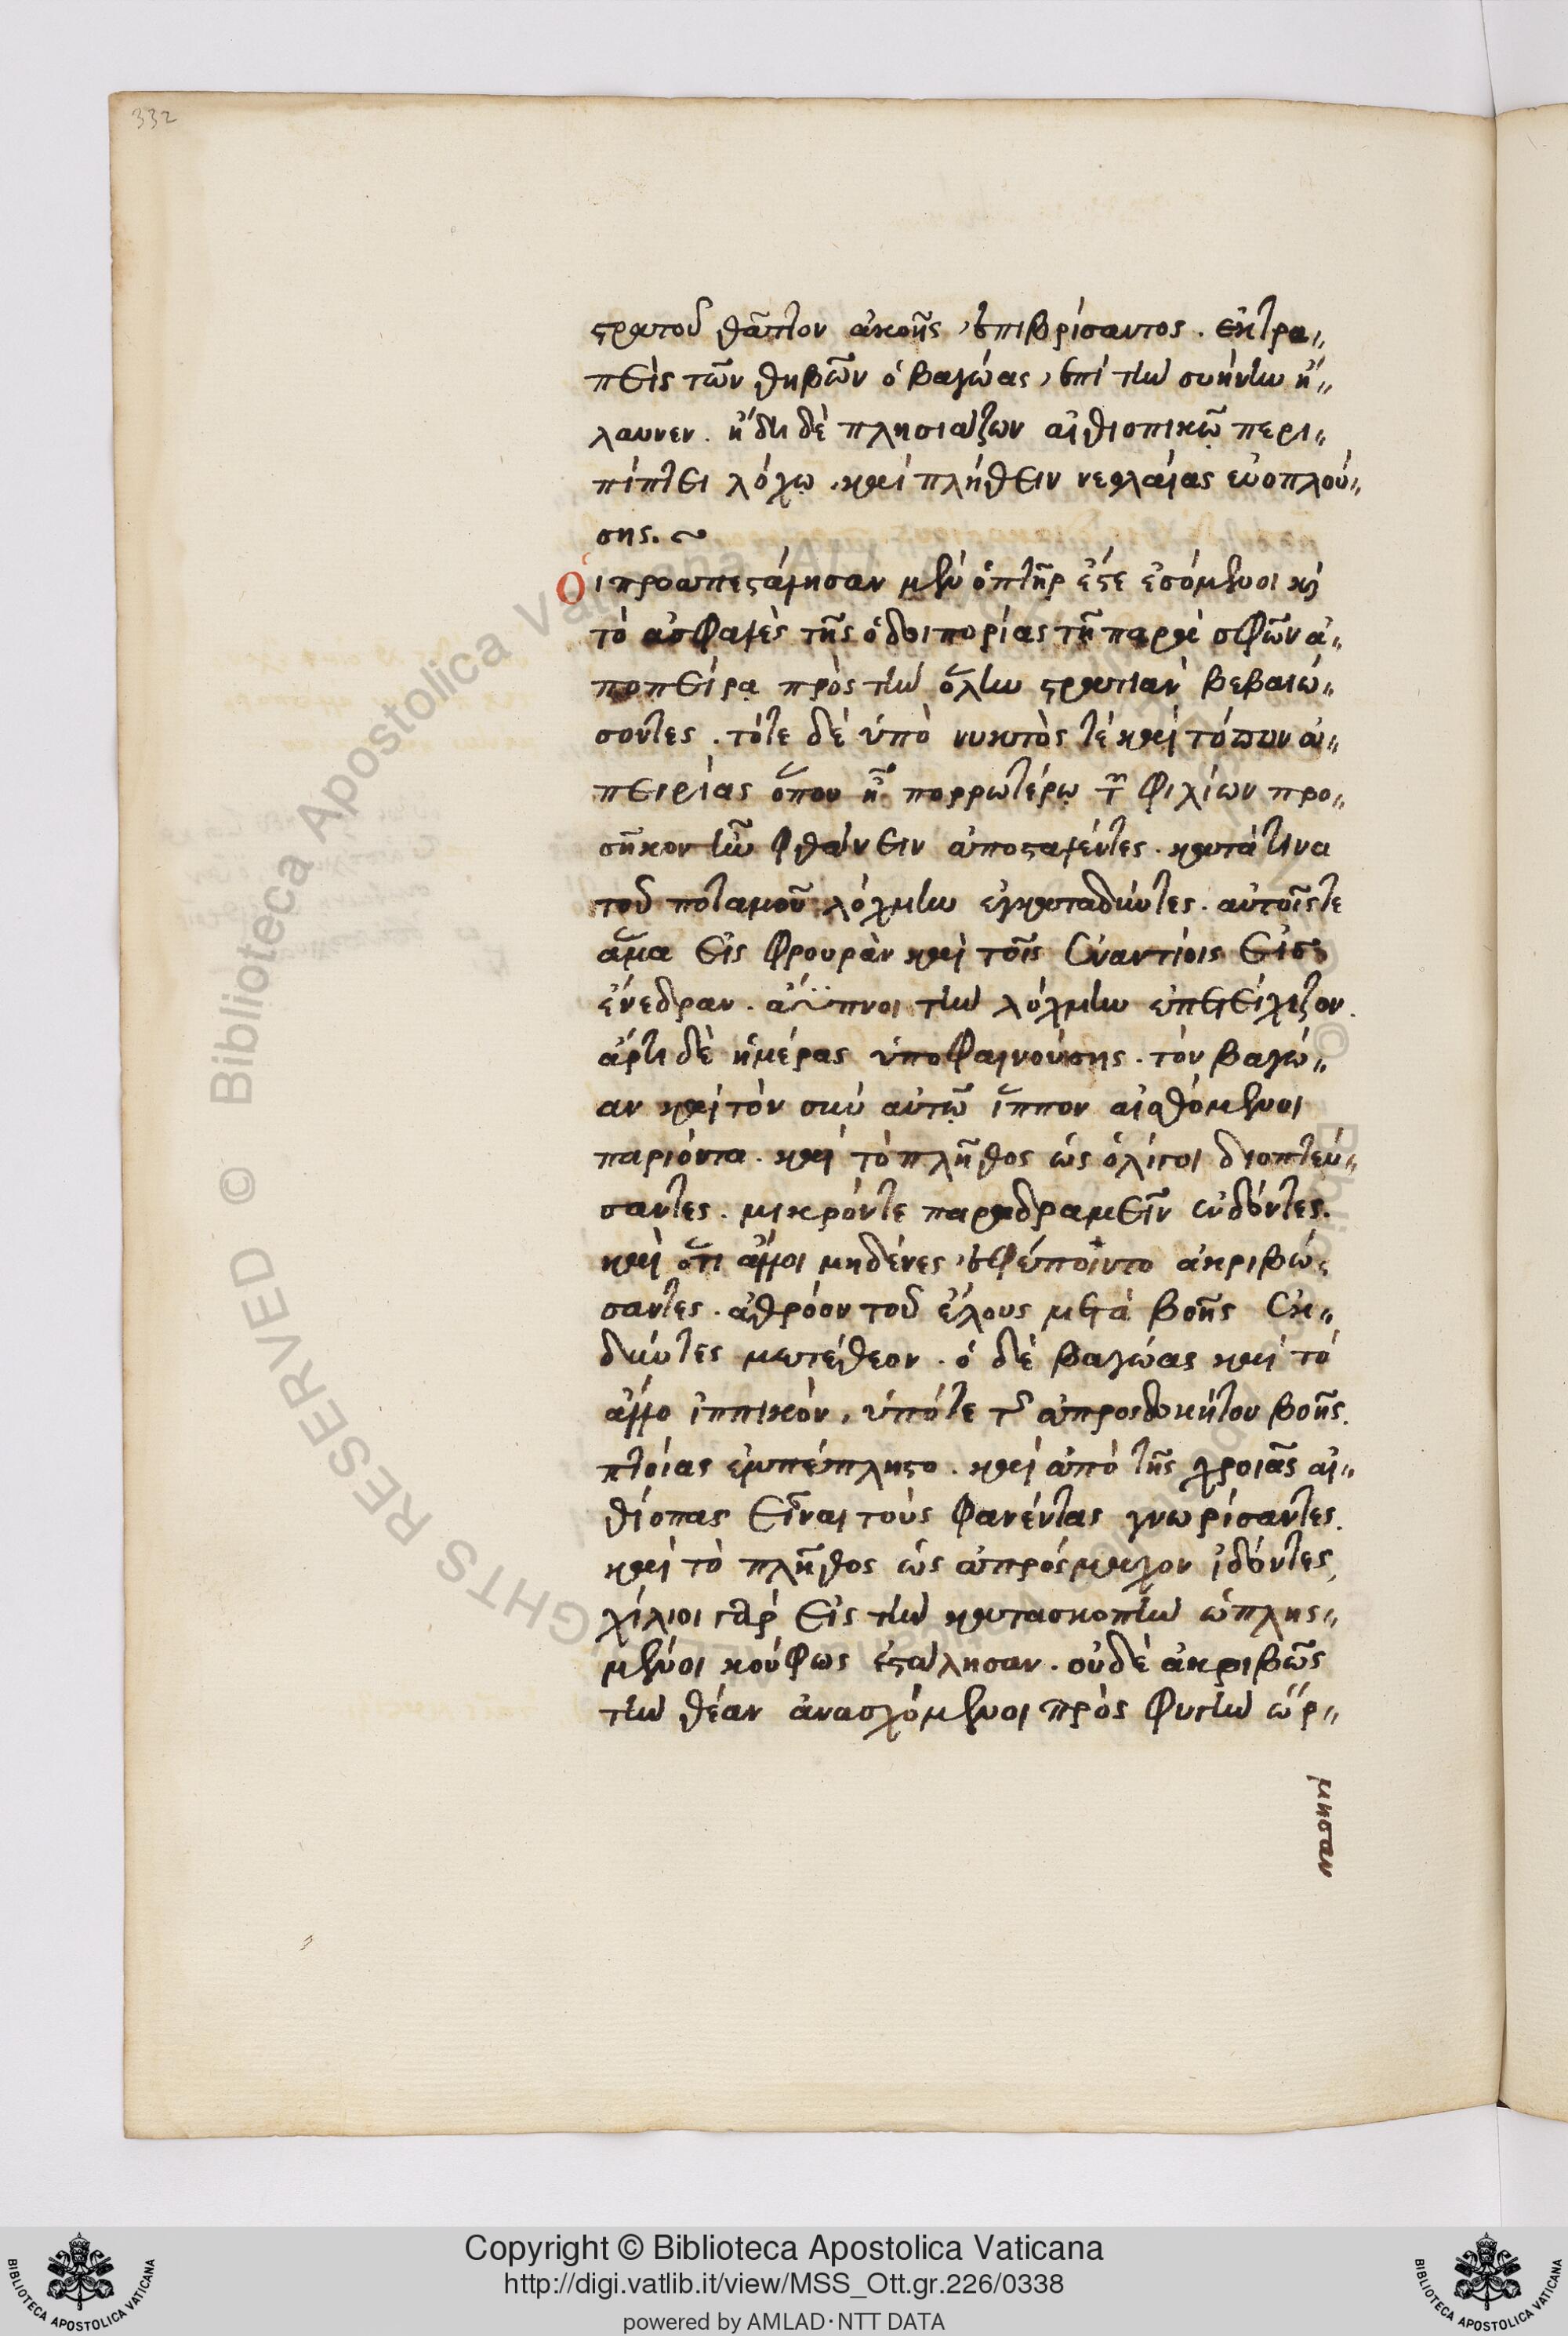 332
στρατοῦ θᾶττον ἀκοῆς ἐπιβρίσαντος. ἐκτρα„
πεὶς τῶν θηβῶν ὁ βαγώας, ἐπὶ τὴν συήνην ἤ„
λαυνεν. ἤδη δὲ πλησιάζων αἰθιοπικῶ περι„
πίπτει λόχω, καὶ πλήθειν νεολαίας εὐοπλού„
σης. ~
Οἱ προαπεστάλησαν μὲν ὀπτῆρές τε ἐσόμενοι καὶ
τὸ ἀσφαλὲς τῆς ὁδοιπορίας τῆ παρὰ σφῶν ἀ„
ποπείρα πρὸς τὴν ὅλην στρατιὰν βεβαιώ„
σοντες. τότε δὲ ὑπὸ νυκτὸς τὲ καὶ τόπων ἀ„
πειρίας ὅπου ἦ πορρωτέρω τῶν φιλίων προ„
σῆκον ἦν φθάνειν ἀποσταλέντες. κατά τινα
τοῦ ποταμοῦ λόχμην ἐγκαταδύντες. αὐτοῖς τε
ἅμα εἰς φρουρὰν καὶ τοῖς ἐναντίοις εἰς
ἐνέδραν. ἄϋπνοι τὴν λόχμην ἐπετείχιζον.
ἄρτι δὲ ἡμέρας ὑποφαινούσης. τὸν βαγώ„
αν καὶ τὸν σὺν αὐτῶ ἵππον αἰσθόμενοι
παριόντα. καὶ τὸ πλῆθος ὡς ὀλίγοι διοπτεύ„
σαντες. μικρόν τε παραδραμεῖν ἐνδόντες.
καὶ ὅτι ἄλλοι μηδένες ἐφέποιντο ἀκριβώ„
σαντες. ἀθρόον τοῦ ἕλους μετὰ βοῆς ἐκ„
δύντες μετέθεον. ὁ δὲ βαγώας καὶ τὸ
ἄλλο ἱππικὸν, ὑπό τε τοῦ ἀπροσδοκήτου βοῆς.
πτοίας ἐμπέπληστο. καὶ ἀπὸ τῆς χροιᾶς αἰ„
θίοπας εἶναι τοὺς φανέντας γνωρίσαντες.
καὶ τὸ πλῆθος ὡς ἀπρόσμαχον ἰδόντες,
χίλιοι γὰρ εἰς τὴν κατασκοπὴν ὡπλισ„
μένοι κούφως ἐστάλησαν. οὐδὲ ἀκριβῶς
τὴν θέαν ἀνασχόμενοι πρὸς φυγὴν ὥρ„
μησαν
Copyright © Biblioteca Apostolica Vaticana
http://digi.vatlib.it/view/MSS_Ott.gr.226/0338
powered by AMLAD·NTT DATA